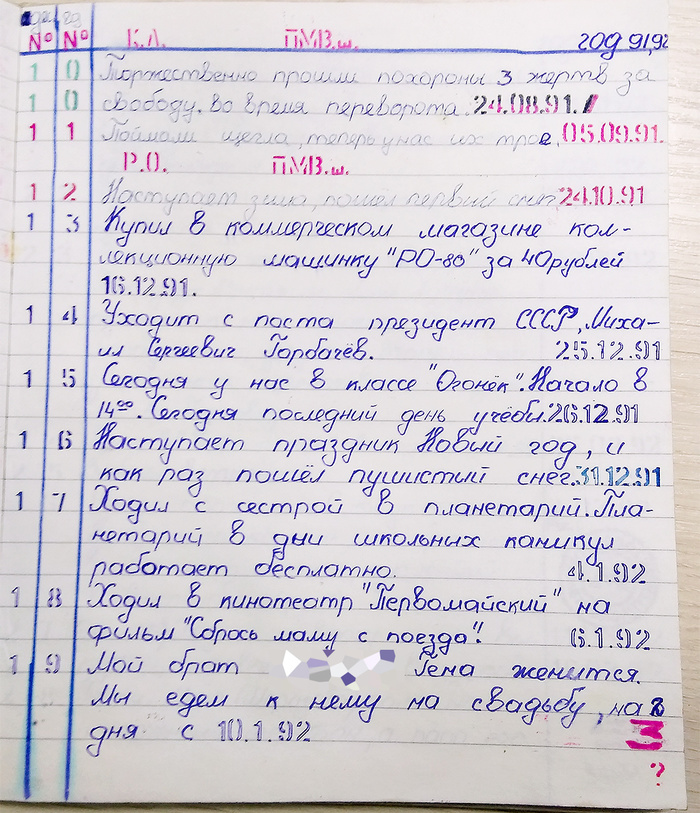 № № К.Л. ПМВ.ш. год 91,92
1 0 Торжественно прошли похороны 3 жертв за
1 0 свободу. Во время переворота. 24.08.91.
1 1 Поймали щегла, теперь у нас их трое. 05.09.91.
Р.О. ПМВ.ш.
1 2 Наступает зима, пошёл первый снег 24.10.91
1 3 Купил в коммерческом магазине кол-
лекционную машинку "РО-80" за 40 рублей
16.12.91.
1 4 Уходит с поста президент СССР, Миха-
ил Сергеевич Горбачёв. 25.12.91
1 5 Сегодня у нас в классе "Огонёк". Начало в
14⁰⁰. Сегодня последний день учёбы. 26.12.91
1 6 Наступает праздник Новый год, и
как раз пошёл пушистый снег. 31.12.91
1 7 Ходил с сестрой в планетарий. Пла-
нетарий в дни школьных каникул
работает бесплатно. 4.1.92
1 8 Ходил в кинотеатр "Первомайский" на
фильм "Сбрось маму с поезда"! 6.1.92
1 9 Мой брат Гена женится.
Мы едем к нему на свадьбу, на 2
дня с 10.1.92
?